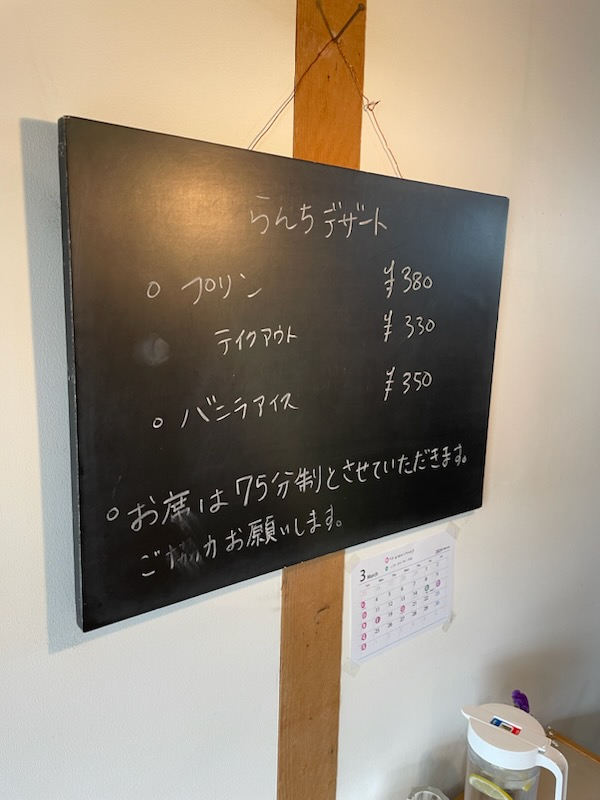 らんちデザート
○ プリン ¥380
テイクアウト ¥330
○ バニラアイス ¥350
○ お席は75分制とさせていただきます。
ご協力お願いします。
3 March